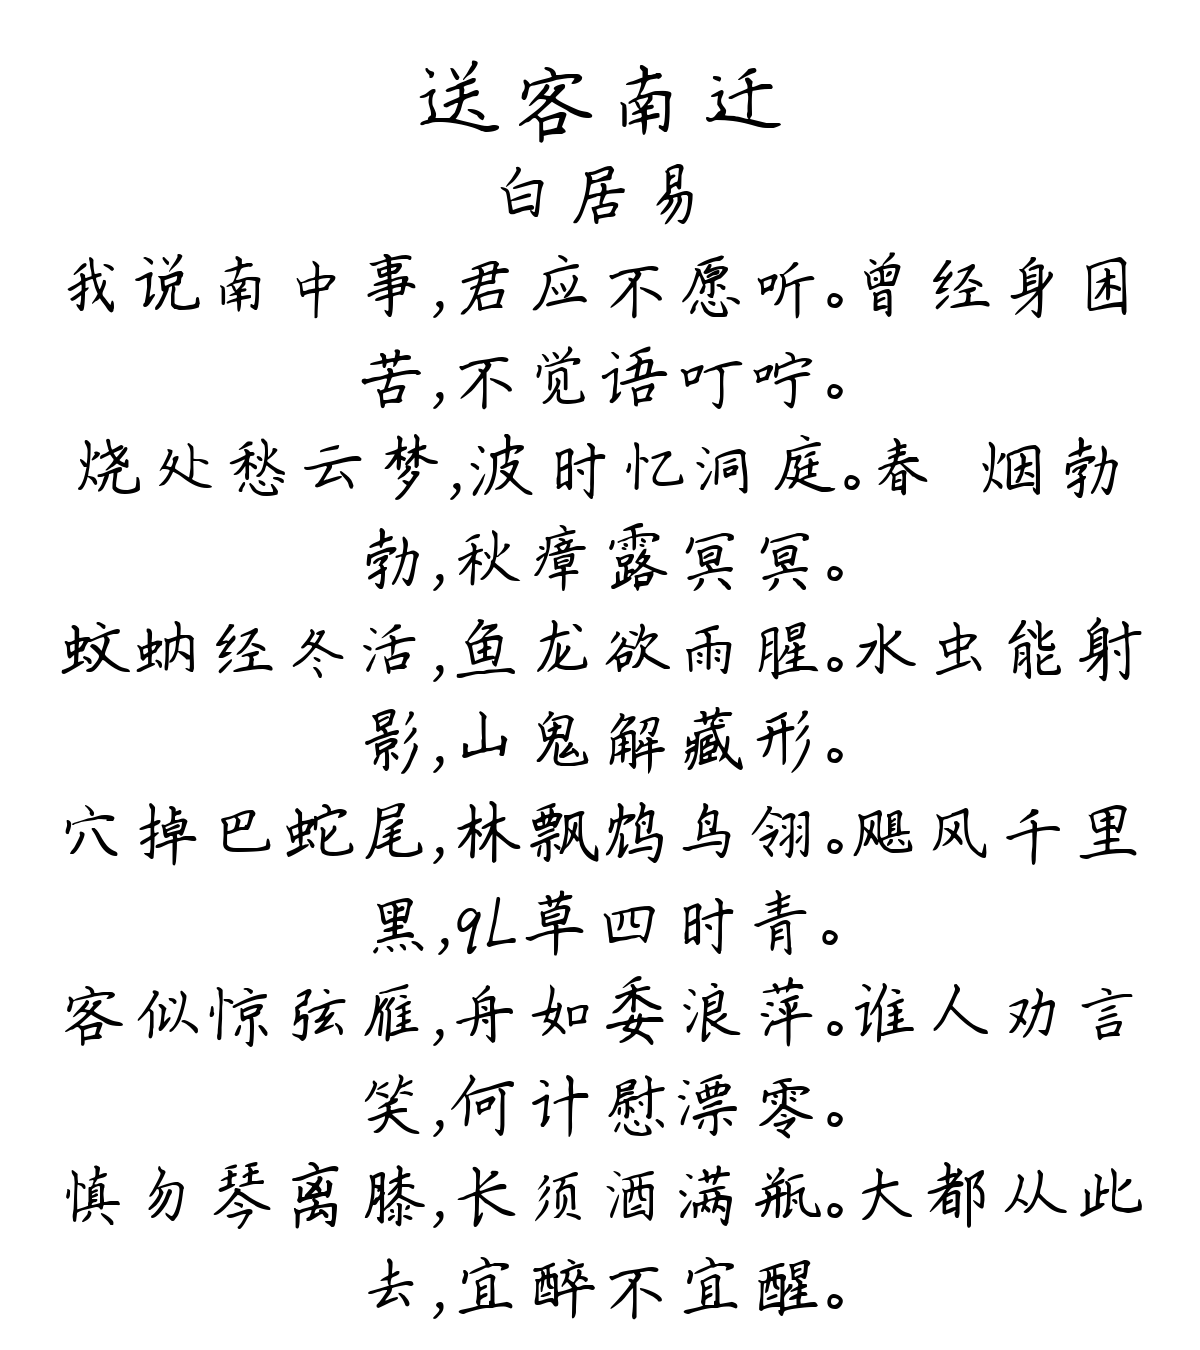 送客南迁
白居易
我说南中事,君应不愿听。曾经身困
苦,不觉语叮咛。
烧处愁云梦,波时忆洞庭。春 烟勃
勃,秋瘴露冥冥。
蚊蚋经冬活,鱼龙欲雨腥。水虫能射
影,山鬼解藏形。
穴掉巴蛇尾,林飘鸩鸟翎。飓风千里
黑,qL草四时青。
客似惊弦雁,舟如委浪萍。谁人劝言
笑,何计慰漂零。
慎勿琴离膝,长须酒满瓶。大都从此
去,宜醉不宜醒。